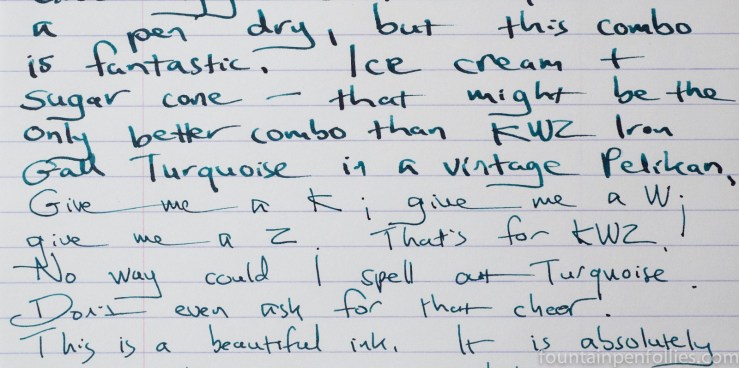 a pen dry, but this combo
is fantastic. Ice cream +
sugar cone — that might be the
only better combo than KWZ Iron
Gall Turquoise in a vintage Pelikan.
Give me a K; give me a W;
give me a Z. That's for KWZ!
No way could I spell out Turquoise.
Don't even ask for that cheer!
This is a beautiful ink. It is absolutely
fountainpenfollies.com